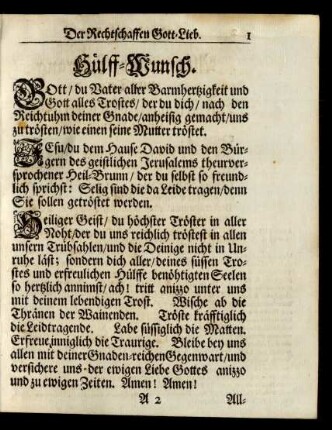 Der Rechtschaffen Gott-Lieb. 1
Hülff-Wunsch.
GOtt/ du Vater aller Barmhertzigkeit und
Gott alles Trostes/ der du dich/ nach den
Reichtuhm deiner Gnade/ anheisig gemacht/ uns
zu trösten/ wie einen seine Mutter tröstet.
JEsu/ du dem Hause David und den Bür-
gern des geistlichen Jerusalems theurver-
sprochener Heil-Brunn/ der du selbst so freund-
lich sprichst: Selig sind die da Leide tragen/ denn
Sie sollen getröstet werden.
Heiliger Geist/ du höchster Tröster in aller
Noht/ der du uns reichlich tröstest in allen
unsern Trübsahlen/ und die Deinige nicht in Un-
ruhe läst; sondern dich aller/ deines süssen Tro-
stes und erfreulichen Hülffe benöhtigten Seelen
so hertzlich annimst/ ach! tritt anizzo unter uns
mit deinem lebendigen Trost. Wische ab die
Thränen der Wainenden. Tröste kräfftiglich
die Leidtragende. Labe süssiglich die Matten.
Erfreue inniglich die Traurige. Bleibe bey uns
allen mit deiner Gnaden-reichen Gegenwart/ und
versichere uns der ewigen Liebe Gottes anizzo
und zu ewigen Zeiten. Amen! Amen!
A 2 All-